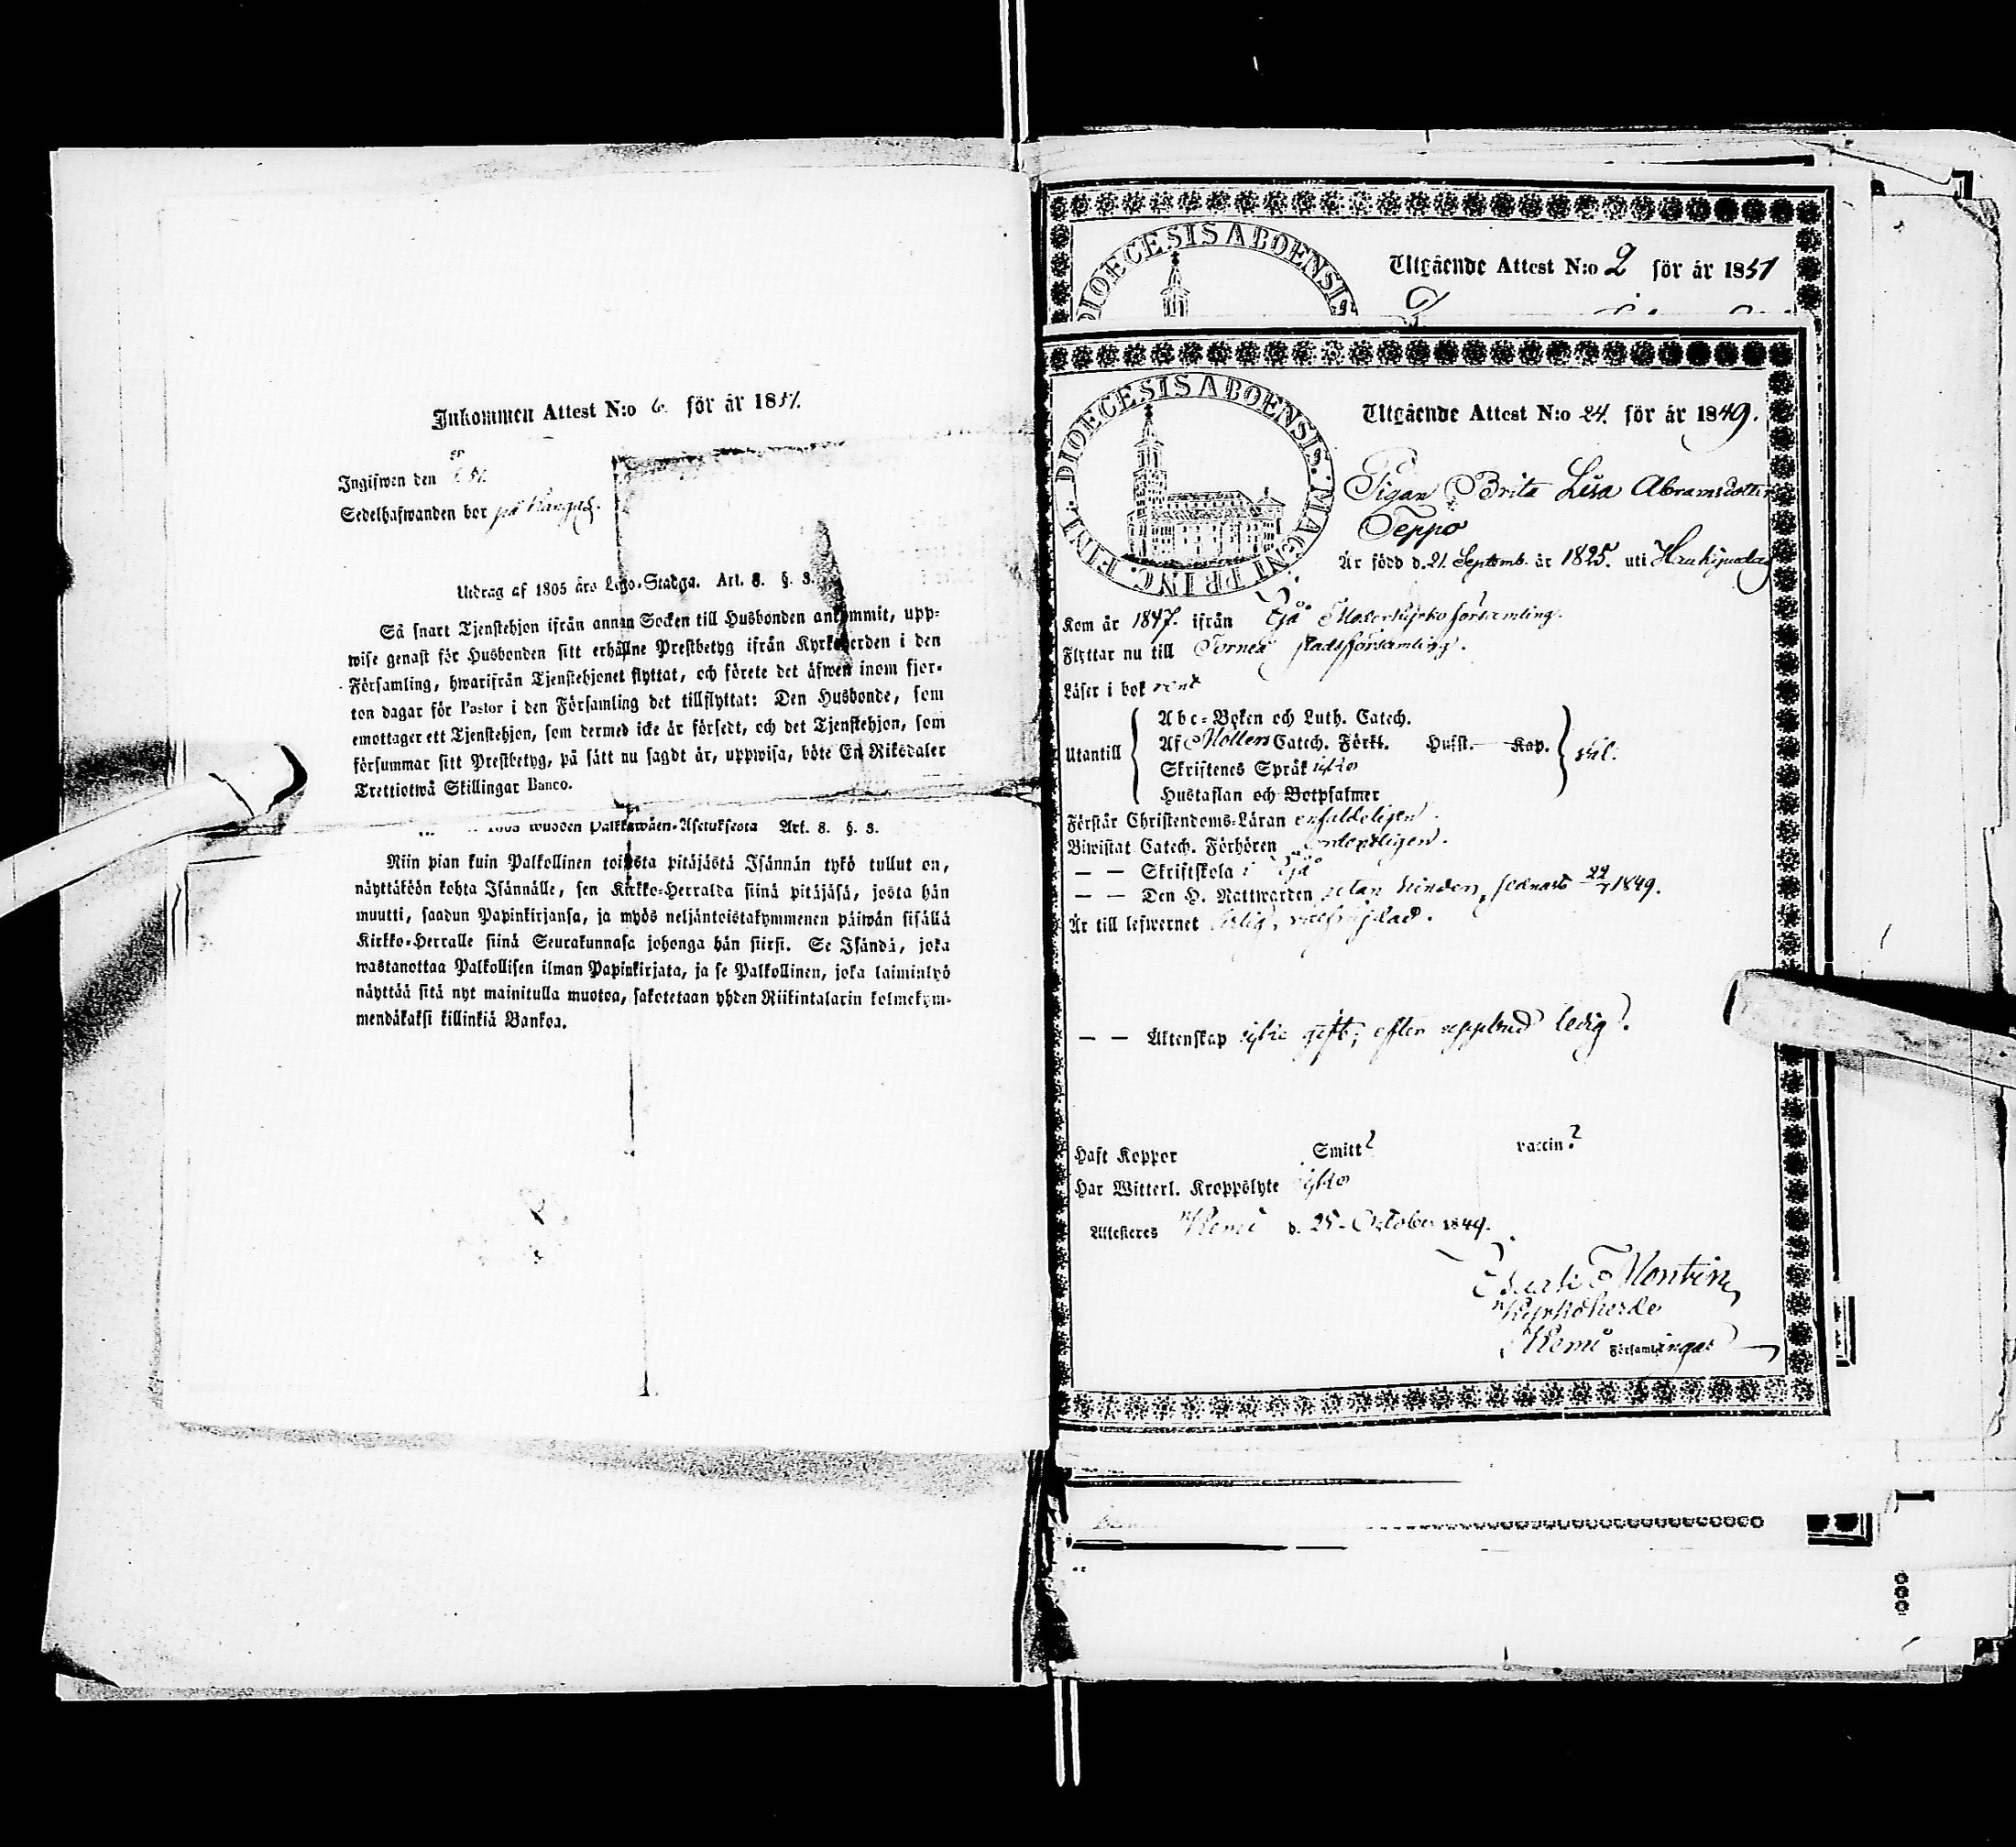 Inkommen Attest N:o 6. för år 1851.
Ingifwen den
Sedelhafwanden bor på
Utdrag af 1805 års Lego-Stadga. Art. 8. §. 3.
Så snart Tjenstehjon ifrån annan Socken till Husbonden ankommit, upp-
wise genast för Husbonden sitt erhållne Prestbetyg ifrån Kyrkoherden i den
Församling, hwarifrån Tjenstehjonet flyttat, och förete det äfwen inom fjor-
ton dagar för Pastor i den Församling det tillflyttat: Den Husbonde, som
emottager ett Tjenstehjon, som dermed icke är försedt, och det Tjenstehjon, som
försummar sitt Prestbetyg, på sätt nu sagdt är, uppwisa, böte En Riksdaler
Trettiotwå Skillingar Banco.
1805 wuoden Palkkawäen-Asetuksesta Art. 8. §. 3.
Niin pian kuin Palkollinen toisesta pitäjästä Isännän tykö tullut on,
näyttäköön kohta Isännälle, sen Kirkko-Herralda siinä pitäjäsä, josta hän
muutti, saadun Papinkirjansa, ja myös neljäntoistakymmenen päiwän sisällä
Kirkko-Herralle siinä Seurakunnasa johonga hän siirsi. Se Isändä, joka
wastanottaa Palkollisen ilman Papinkirjata, ja se Palkollinen, joka laiminlyö
näyttää sitä nyt mainitulla muotoa, sakotetaan yhden Riikintalarin kolmekym-
mendäkaksi killinkiä Bankoa.
DIOECESIS ABOENSIS
Utgående Attest N:o 2 för år 1851
DIOECESIS ABOENSIS. MAGNI PRINC. FINL.
Utgående Attest N:o 24. för år 1849.
Pigan Brita Lisa Abramsdotter
Teppo
Är född d. 21. Septemb. år 1825. uti Haukipudas
Kom år 1847. ifrån Ijå Moderkyrko församling.
Flyttar nu till Torneå stadsförsamling.
Läser i bok rent
Utantill
Abc-Boken och Luth. Catech.
Af Möllers Catech. Förkl. Hufst. Kap.
Skriftenes Språk icke
Hustaflan och Botpsalmer
väl.
Förstår Christendoms-Läran enfaldeligen.
Biwistat Catech. Förhören ordentligen.
— — Skriftskola i Ijå
— — Den H. Nattwarden utan hinder, sednast 22/7 1849.
Är till lefwernet ärlig, välfrejdad.
— — Äktenskap icke gift; efter uppbud ledig?.
Haft Koppor Smitt? vaccin.?
Har Witterl. Kroppslyte icke
Attesteres Kemi d. 25. October 1849.
Montin,
Kyrkoherde
Kemi Församlingar